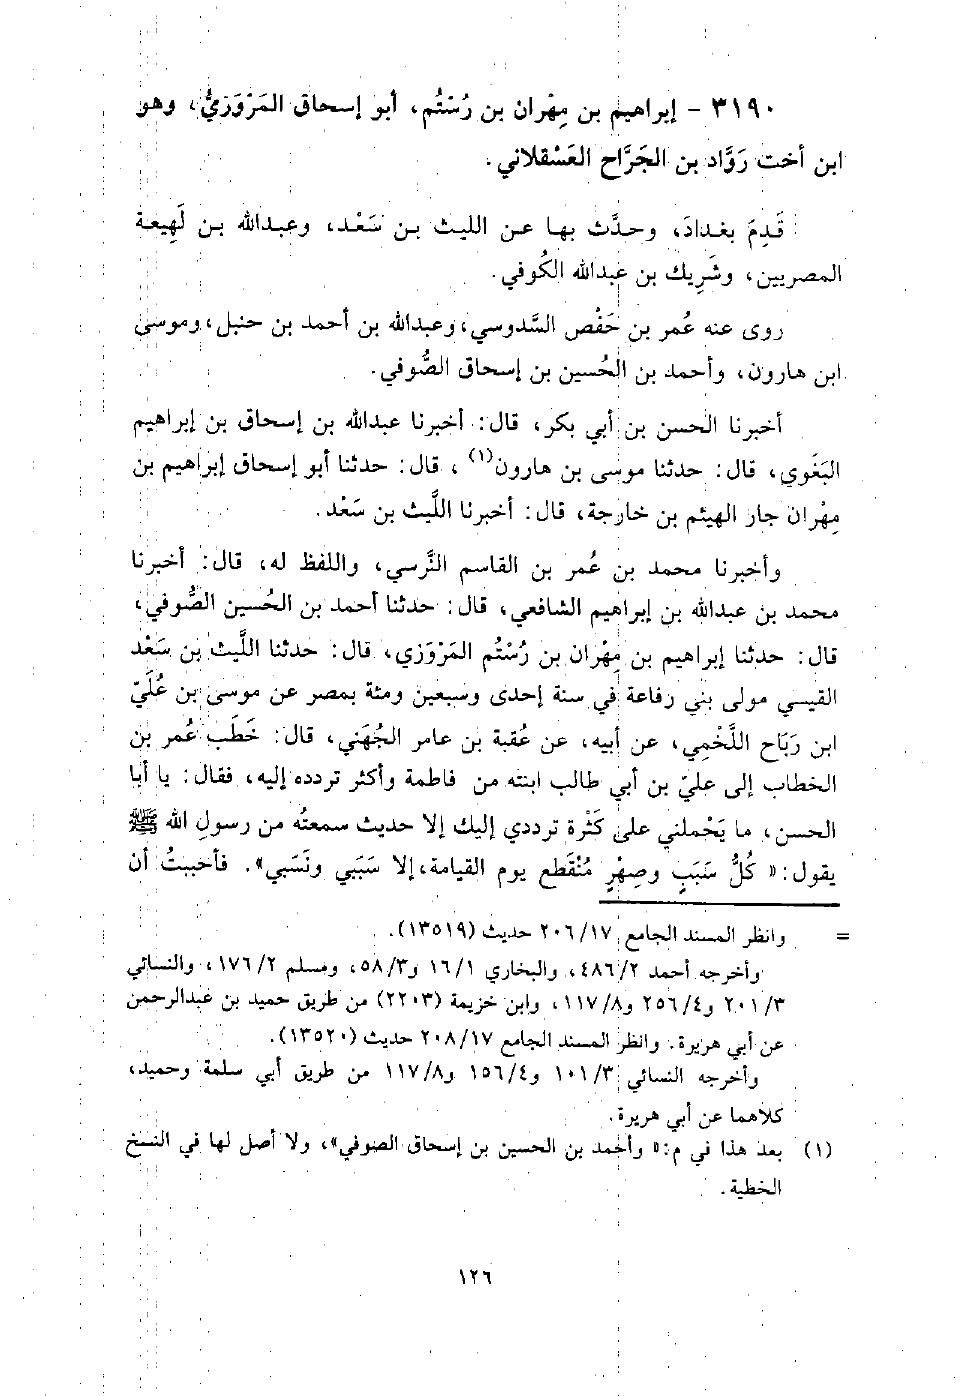 ٣١٩٠ - إبراهيم بن مِهْران بن رُسْتُم، أبو إسحاق المَرْوَزيُّ، وهو
ابن أخت رَوَّاد بن الجَرَّاح العَسْقلاني.
قَدِمَ بغدادَ، وحدَّث بها عن الليث بن سَعْد، وعبدالله بن لَهِيعة
المصريين، وشَرِيك بن عبدالله الكُوفي.
روى عنه عُمر بن حَفْص السَّدوسي، وعبدالله بن أحمد بن حنبل، وموسى
ابن هارون، وأحمد بن الحُسين بن إسحاق الصُّوفي.
أخبرنا الحسن بن أبي بكر، قال: أخبرنا عبدالله بن إسحاق بن إبراهيم
البَغَوي، قال: حدثنا موسى بن هارون(١)، قال: حدثنا أبو إسحاق إبراهيم بن
مِهْران جار الهيثم بن خارجة، قال: أخبرنا اللَّيث بن سَعْد.
وأخبرنا محمد بن عُمر بن القاسم النَّرسي، واللفظ له، قال: أخبرنا
محمد بن عبدالله بن إبراهيم الشافعي، قال: حدثنا أحمد بن الحُسين الصُّوفي،
قال: حدثنا إبراهيم بن مِهْران بن رُسْتُم المَرْوَزي، قال: حدثنا اللَّيث بن سَعْد
القيسي مولى بني رفاعة في سنة إحدى وسبعين ومئة بمصر عن موسى بن عُلَيّ
ابن رَبَاح اللَّخْمي، عن أبيه، عن عُقبة بن عامر الجُهَني، قال: خَطَب عُمر بن
الخطاب إلى عليّ بن أبي طالب ابنته من فاطمة وأكثر تردده إليه، فقال: يا أبا
الحسن، ما يَحْملني على كَثْرة ترددي إليك إلا حديث سمعتُه من رسولِ الله ﷺ
يقول: «كُلُّ سَبَبٍ وصِهْرٍ مُنْقَطع يوم القيامة، إلا سَبَبي ونَسَبي». فأحببتُ أن
= وانظر المسند الجامع ١٧/ ٢٠٦ حديث (١٣٥١٩).
وأخرجه أحمد ٢/ ٤٨٦، والبخاري ١/ ١٦ و٣/ ٥٨، ومسلم ٢/ ١٧٦، والنسائي
٣/ ٢٠١ و٤/ ٢٥٦ و٨/ ١١٧، وابن خزيمة (٢٢٠٣) من طريق حميد بن عبدالرحمن
عن أبي هريرة. وانظر المسند الجامع ١٧/ ٢٠٨ حديث (١٣٥٢٠).
وأخرجه النسائي ٣/ ١٠١ و٤/ ١٥٦ و٨/ ١١٧ من طريق أبي سلمة وحميد،
كلاهما عن أبي هريرة.
(١) بعد هذا في م: «وأحمد بن الحسين بن إسحاق الصوفي»، ولا أصل لها في النسخ
الخطية.
١٢٦